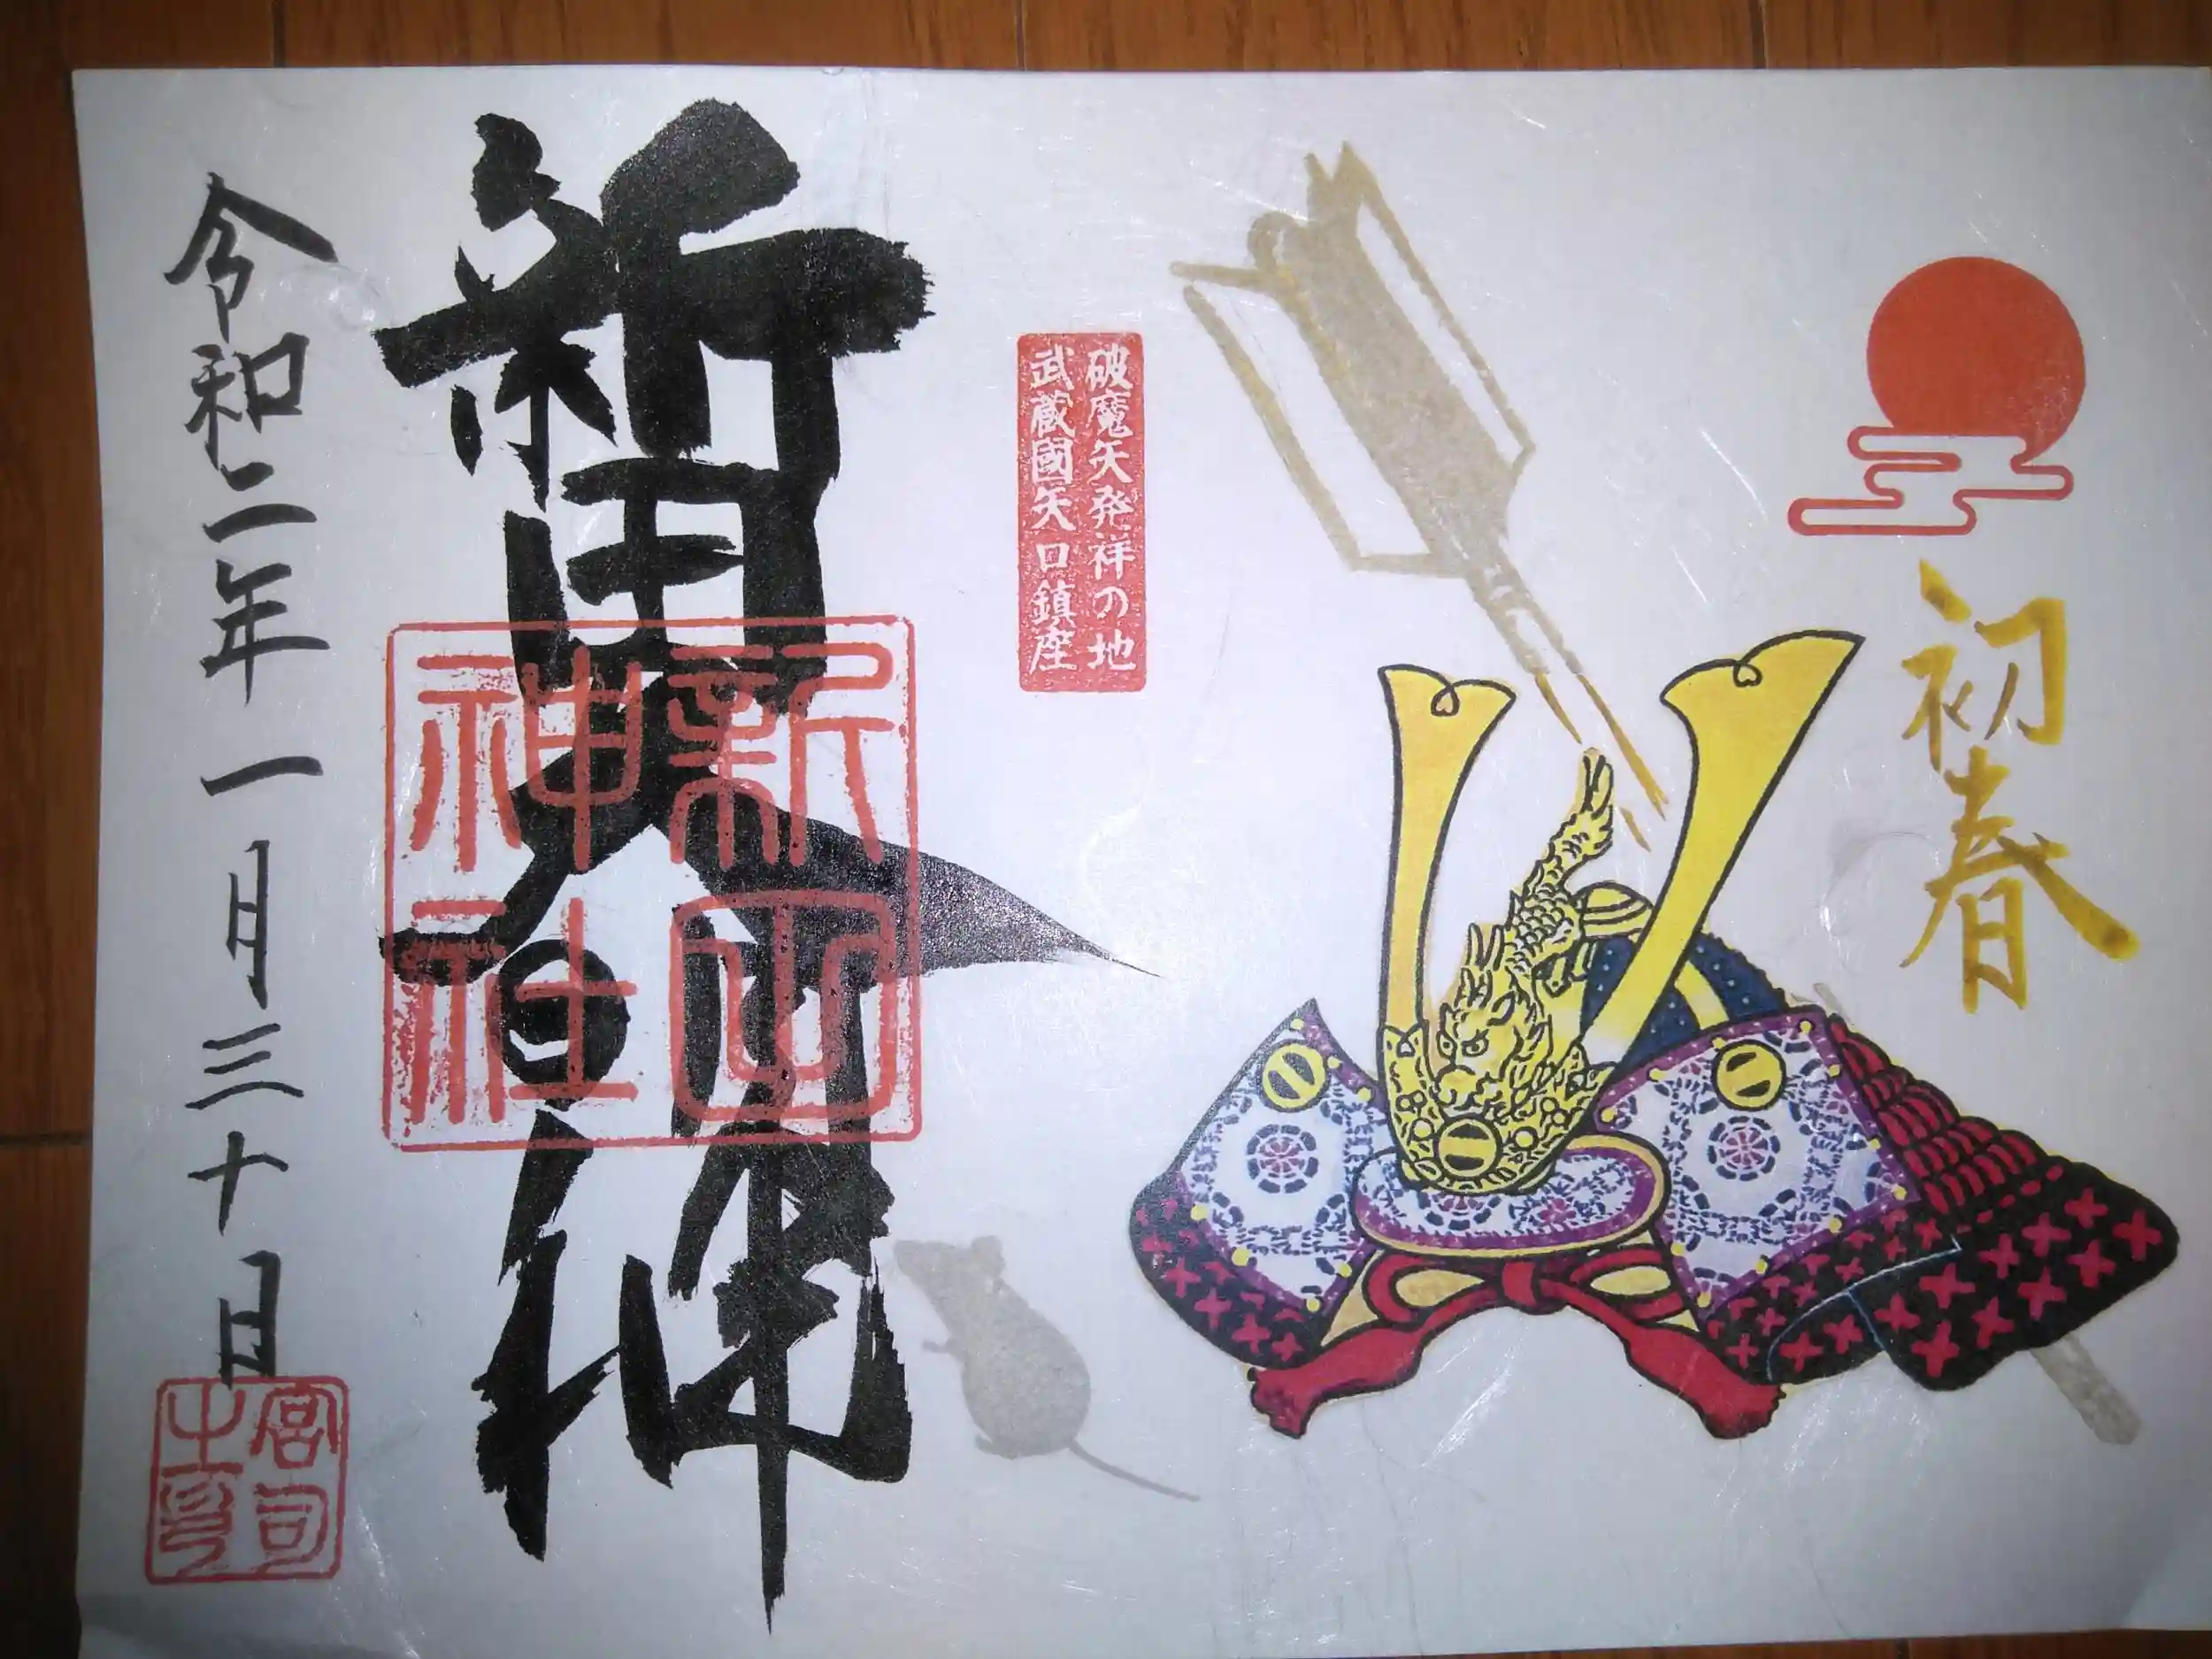 初春
破魔矢発祥の地
武蔵國矢口鎮座
新田大明神
新田神社
令和二年一月三十日
宮司之印